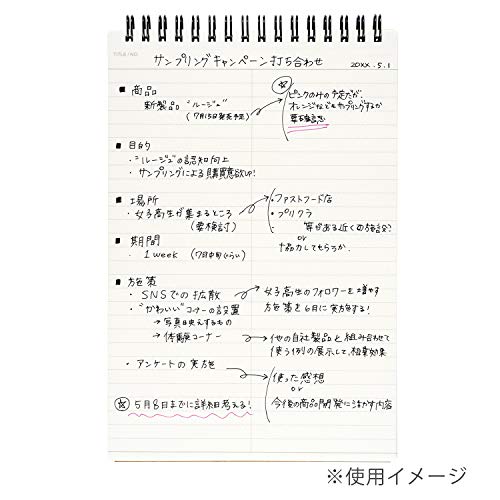 TITLE / NO.
サンプリングキャンペーン打ち合わせ
20XX.5.1
■ 商品
新製品 "ルージュ"
(7月15日発売予定)
☆
ピンクのみの予定だが、
オレンジなどもサンプリングするか
要確認
■ 目的
・"ルージュ"の認知向上
・サンプリングによる購買意欲UP!
■ 場所
・女子高生が集まるところ
(要検討)
・ファストフード店
・プリクラ
等がある近くの施設?
or
協力してもらうか。
■ 期間
・1week (7月中旬ぐらい)
■ 施策
・SNSでの拡散
女子高生のフォロワーを増やす
施策を6月に実施する!
・"かわいい"コーナーの設置
→写真映えするもの
→体験コーナー
・他の自社製品と組み合わせて
使う例の展示して、相乗効果
・アンケートの実施
使った感想
or
今後の商品開発に活かす内容
☆ 5月8日までに詳細考える!
※使用イメージ